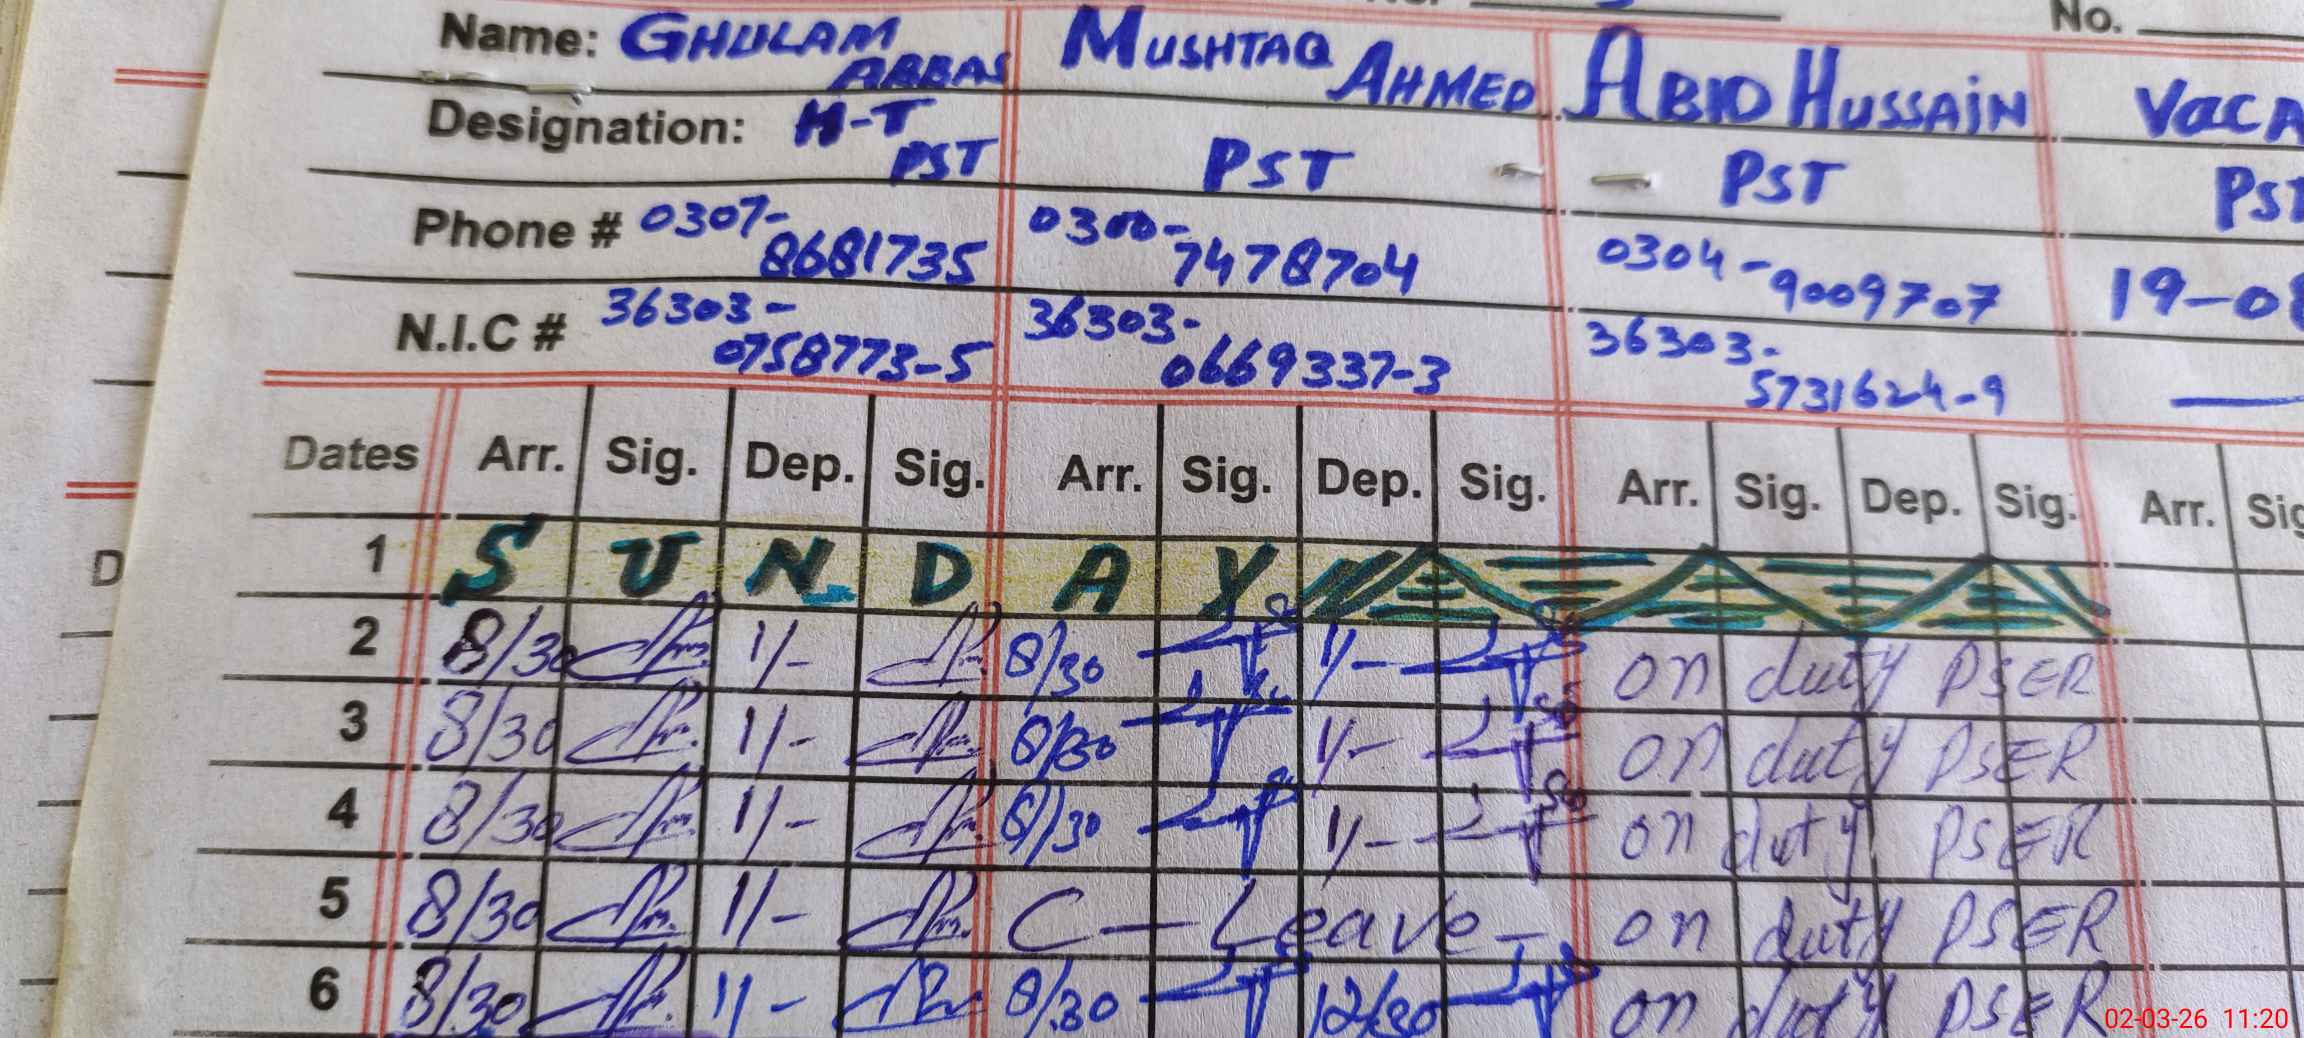 No.
Name: GHULAM ABBAS MUSHTAQ AHMED ABID HUSSAIN VACA
Designation: H-T PST PST PST PST
Phone # 0307-8681735 0300-7478704 0304-9009707 19-08
N.I.C # 36303-0758773-5 36303-0669337-3 36303-5731624-9
Dates Arr. Sig. Dep. Sig. Arr. Sig. Dep. Sig. Arr. Sig. Dep. Sig. Arr. Sig
1 SUNDAY
2 8/30 1/- 8/30 1/- on duty PSER
3 8/30 1/- 8/30 1/- on duty PSER
4 8/30 1/- 8/30 1/- on duty PSER
5 8/30 1/- C-Leave- on duty PSER
6 8/30 1/- 8/30 12/30 on duty PSER
D
02-03-26 11:20